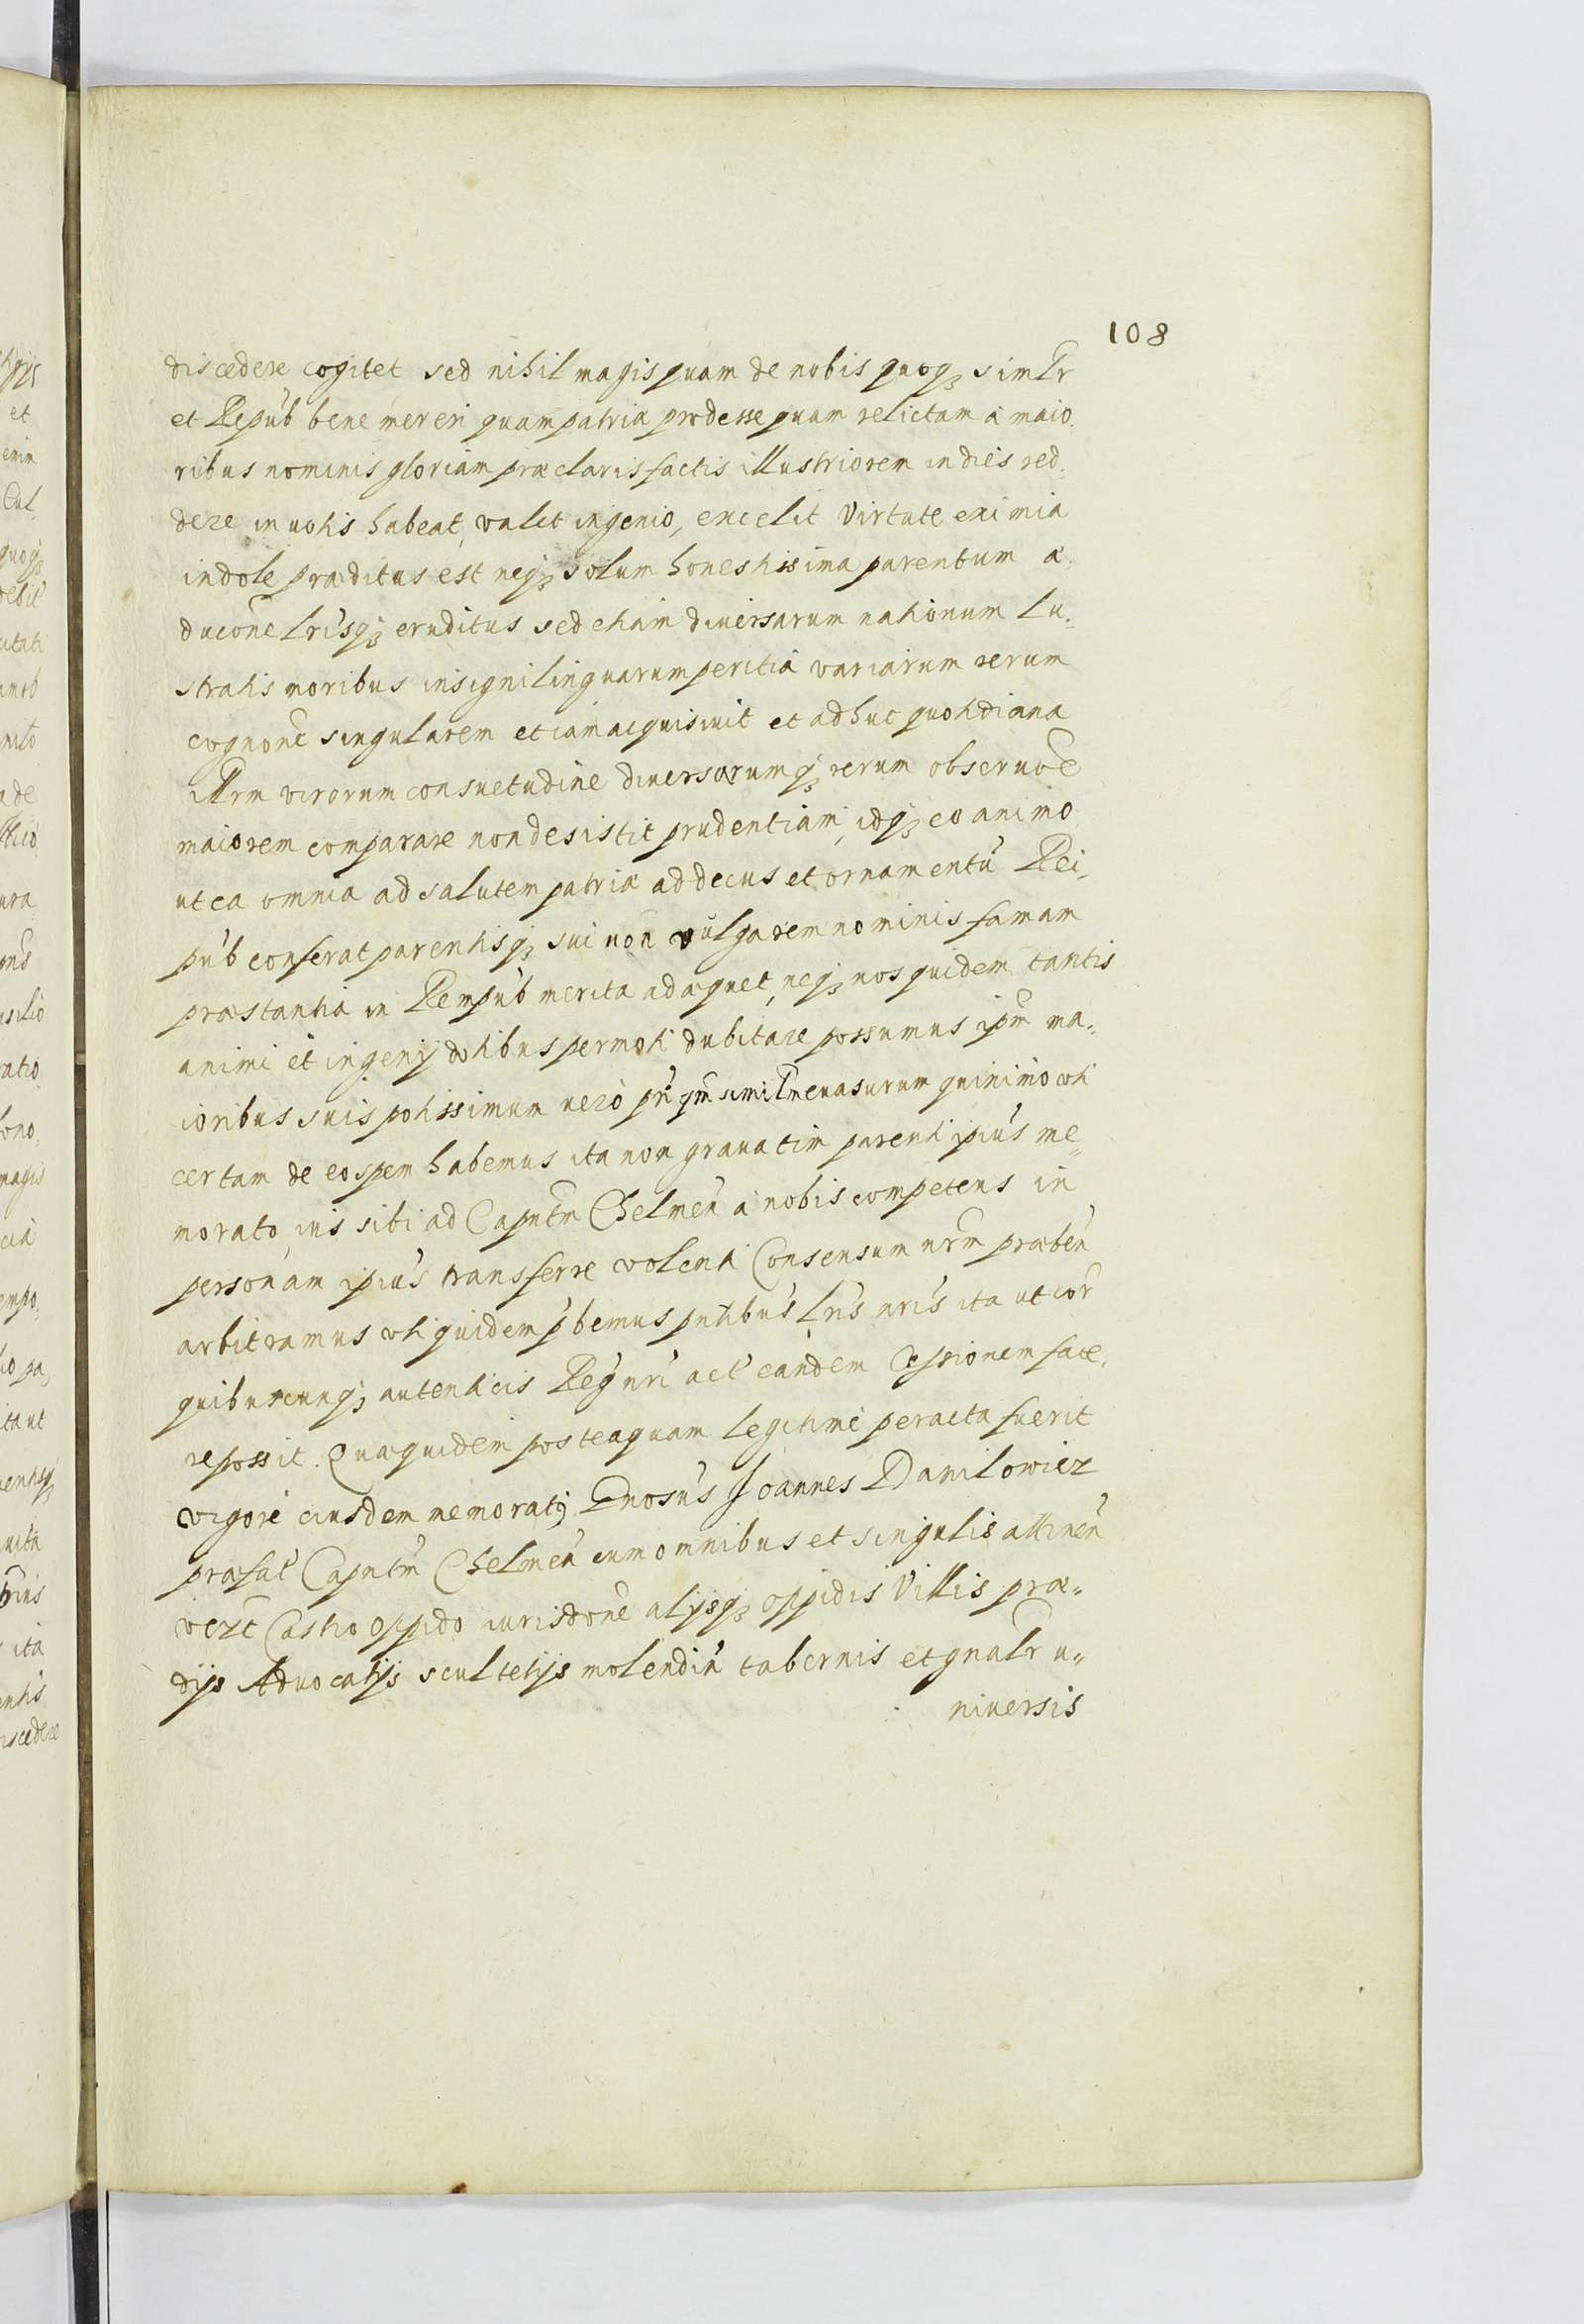 108
discedere cogitet sed nihil magis quam de nobis quoq3 simlr
et Repub bene mereri quam patriæ prodesse quam relictam a maio,
ribus nominis gloriam præclaris factis illustriorem in dies red,
dere in votis habeat, valet ingenio, excelit Virtute eximia
indole præditus est neq3 solum honestissima parentum æ,
ducone Lrisq3 eruditus sed etiam diversarum nationum Lu,
stratis moribus insigni linguarum peritia variarum rerum
cognone singularem etiam acquisivit et adhuc quotidiana
Illrm virorum consuetudine diversarumq3 rerum observoe
maiorem comparare non desistit prudentiam, idq3 eo animo
ut ea omnia ad salutem patriæ ad decus et ornamentu Rei,
pub conferat parentisq3 sui non vulgarem nominis famam
præstantia in Rempub merita adæquet, neq3 nos quidem tantis
animi et ingenij dotibus permoti dubitare possumus ipm ma,,
ioribus suis potissimum vero pri qm similem evasurum quinimo uti
certam de eo spem habemus ita non gravatim parenti ipius me,,
morato ius sibi ad Capntm Chelmen a nobis competens in
personam ipius transferre volenti Consensum nrm præben
arbitramus uti quidem pbemus pntibus Lris nris ita ut cor
quibuscunq3 autenticis Reg nri act eandem Cessionem face,
re possit. Quæ quidem posteaquam legitime peracta fuerit
vigore eiusdem memoratq Gnosus Joannes Danilowicz
præfat Capntm Chelmen cum omnibus et singulis attinen
vezt Castro oppido iurisdone alijsq3 oppidis Villis præ,,
dijs Advocatijs scultetijs molendin tabernis et gnalr u,,
niversis